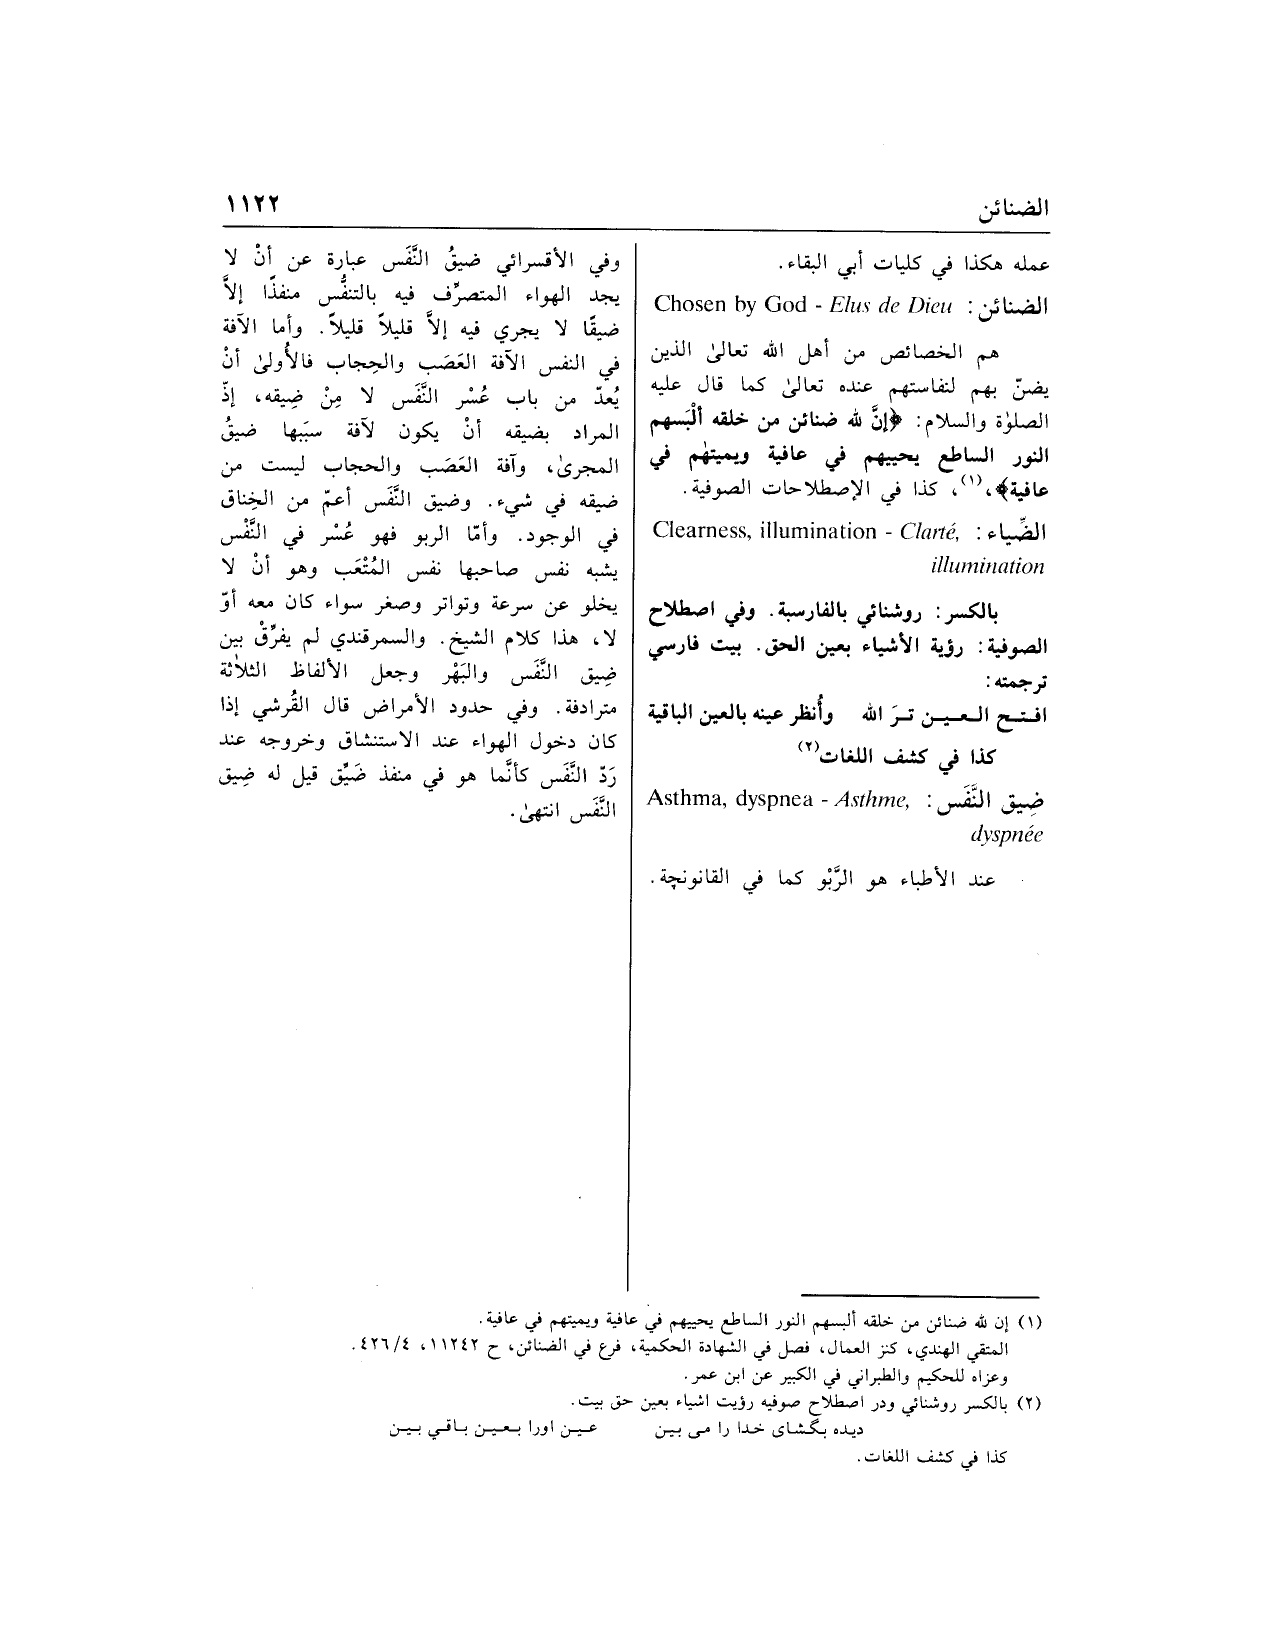 الضنائن
١١٢٢
عمله هكذا في كليات أبي البقاء.
الضنائن : Chosen by God - Elus de Dieu
هم الخصائص من أهل الله تعالىٰ الذين
يضنّ بهم لنفاستهم عنده تعالىٰ كما قال عليه
الصلوٰة والسلام: ﴿إنَّ لله ضنائن من خلقه ألْبَسهم
النور الساطع يحييهم في عافية ويميتهٰم في
عافية﴾،(١)، كذا في الإصطلاحات الصوفية.
الضِّياء : Clearness, illumination - Clarté,
illumination
بالكسر: روشنائي بالفارسية. وفي اصطلاح
الصوفية: رؤية الأشياء بعين الحق. بيت فارسي
ترجمته:
افتح العين ترَ الله وأُنظر عينه بالعين الباقية
كذا في كشف اللغات(٢)
ضِيق النَّفَس : Asthma, dyspnea - Asthme,
dyspnée
عند الأطباء هو الرَّبْو كما في القانونچة.
وفي الأقسرائي ضيقُ النَّفَس عبارة عن أنْ لا
يجد الهواء المتصرِّف فيه بالتنفُّس منفذًا إلاَّ
ضيقًا لا يجري فيه إلاَّ قليلاً قليلاً. وأما الآفة
في النفس الآفة العَصَب والحِجاب فالأُولىٰ أنْ
يُعدّ من باب عُسْر النَّفَس لا مِنْ ضِيقه، إذْ
المراد بضيقه أنْ يكون لآفة سبَبها ضيقُ
المجرىٰ، وآفة العَصَب والحجاب ليست من
ضيقه في شيء. وضيق النَّفَس أعمّ من الخِناق
في الوجود. وأمّا الربو فهو عُسْر في النَّفْس
يشبه نفس صاحبها نفس المُتْعَب وهو أنْ لا
يخلو عن سرعة وتواتر وصغر سواء كان معه أوْ
لا، هذا كلام الشيخ. والسمرقندي لم يفرِّقْ بين
ضِيق النَّفَس والبَهْر وجعل الألفاظ الثلاثة
مترادفة. وفي حدود الأمراض قال القُرشي إذا
كان دخول الهواء عند الاستنشاق وخروجه عند
رَدّ النَّفَس كأنَّما هو في منفذ ضَيِّق قيل له ضِيق
النَّفَس انتهىٰ.
(١) إن لله ضنائن من خلقه ألبسهم النور الساطع يحييهم في عافية ويميتهم في عافية.
المتقي الهندي، كنز العمال، فصل في الشهادة الحكمية، فرع في الضنائن، ح ١١٢٤٢، ٤٢٦/٤.
وعزاه للحكيم والطبراني في الكبير عن ابن عمر.
(٢) بالكسر روشنائي ودر اصطلاح صوفيه رؤيت اشياء بعين حق بيت.
ديده بگشاى خدا را مى بين عين اورا بعين باقي بين
كذا في كشف اللغات.